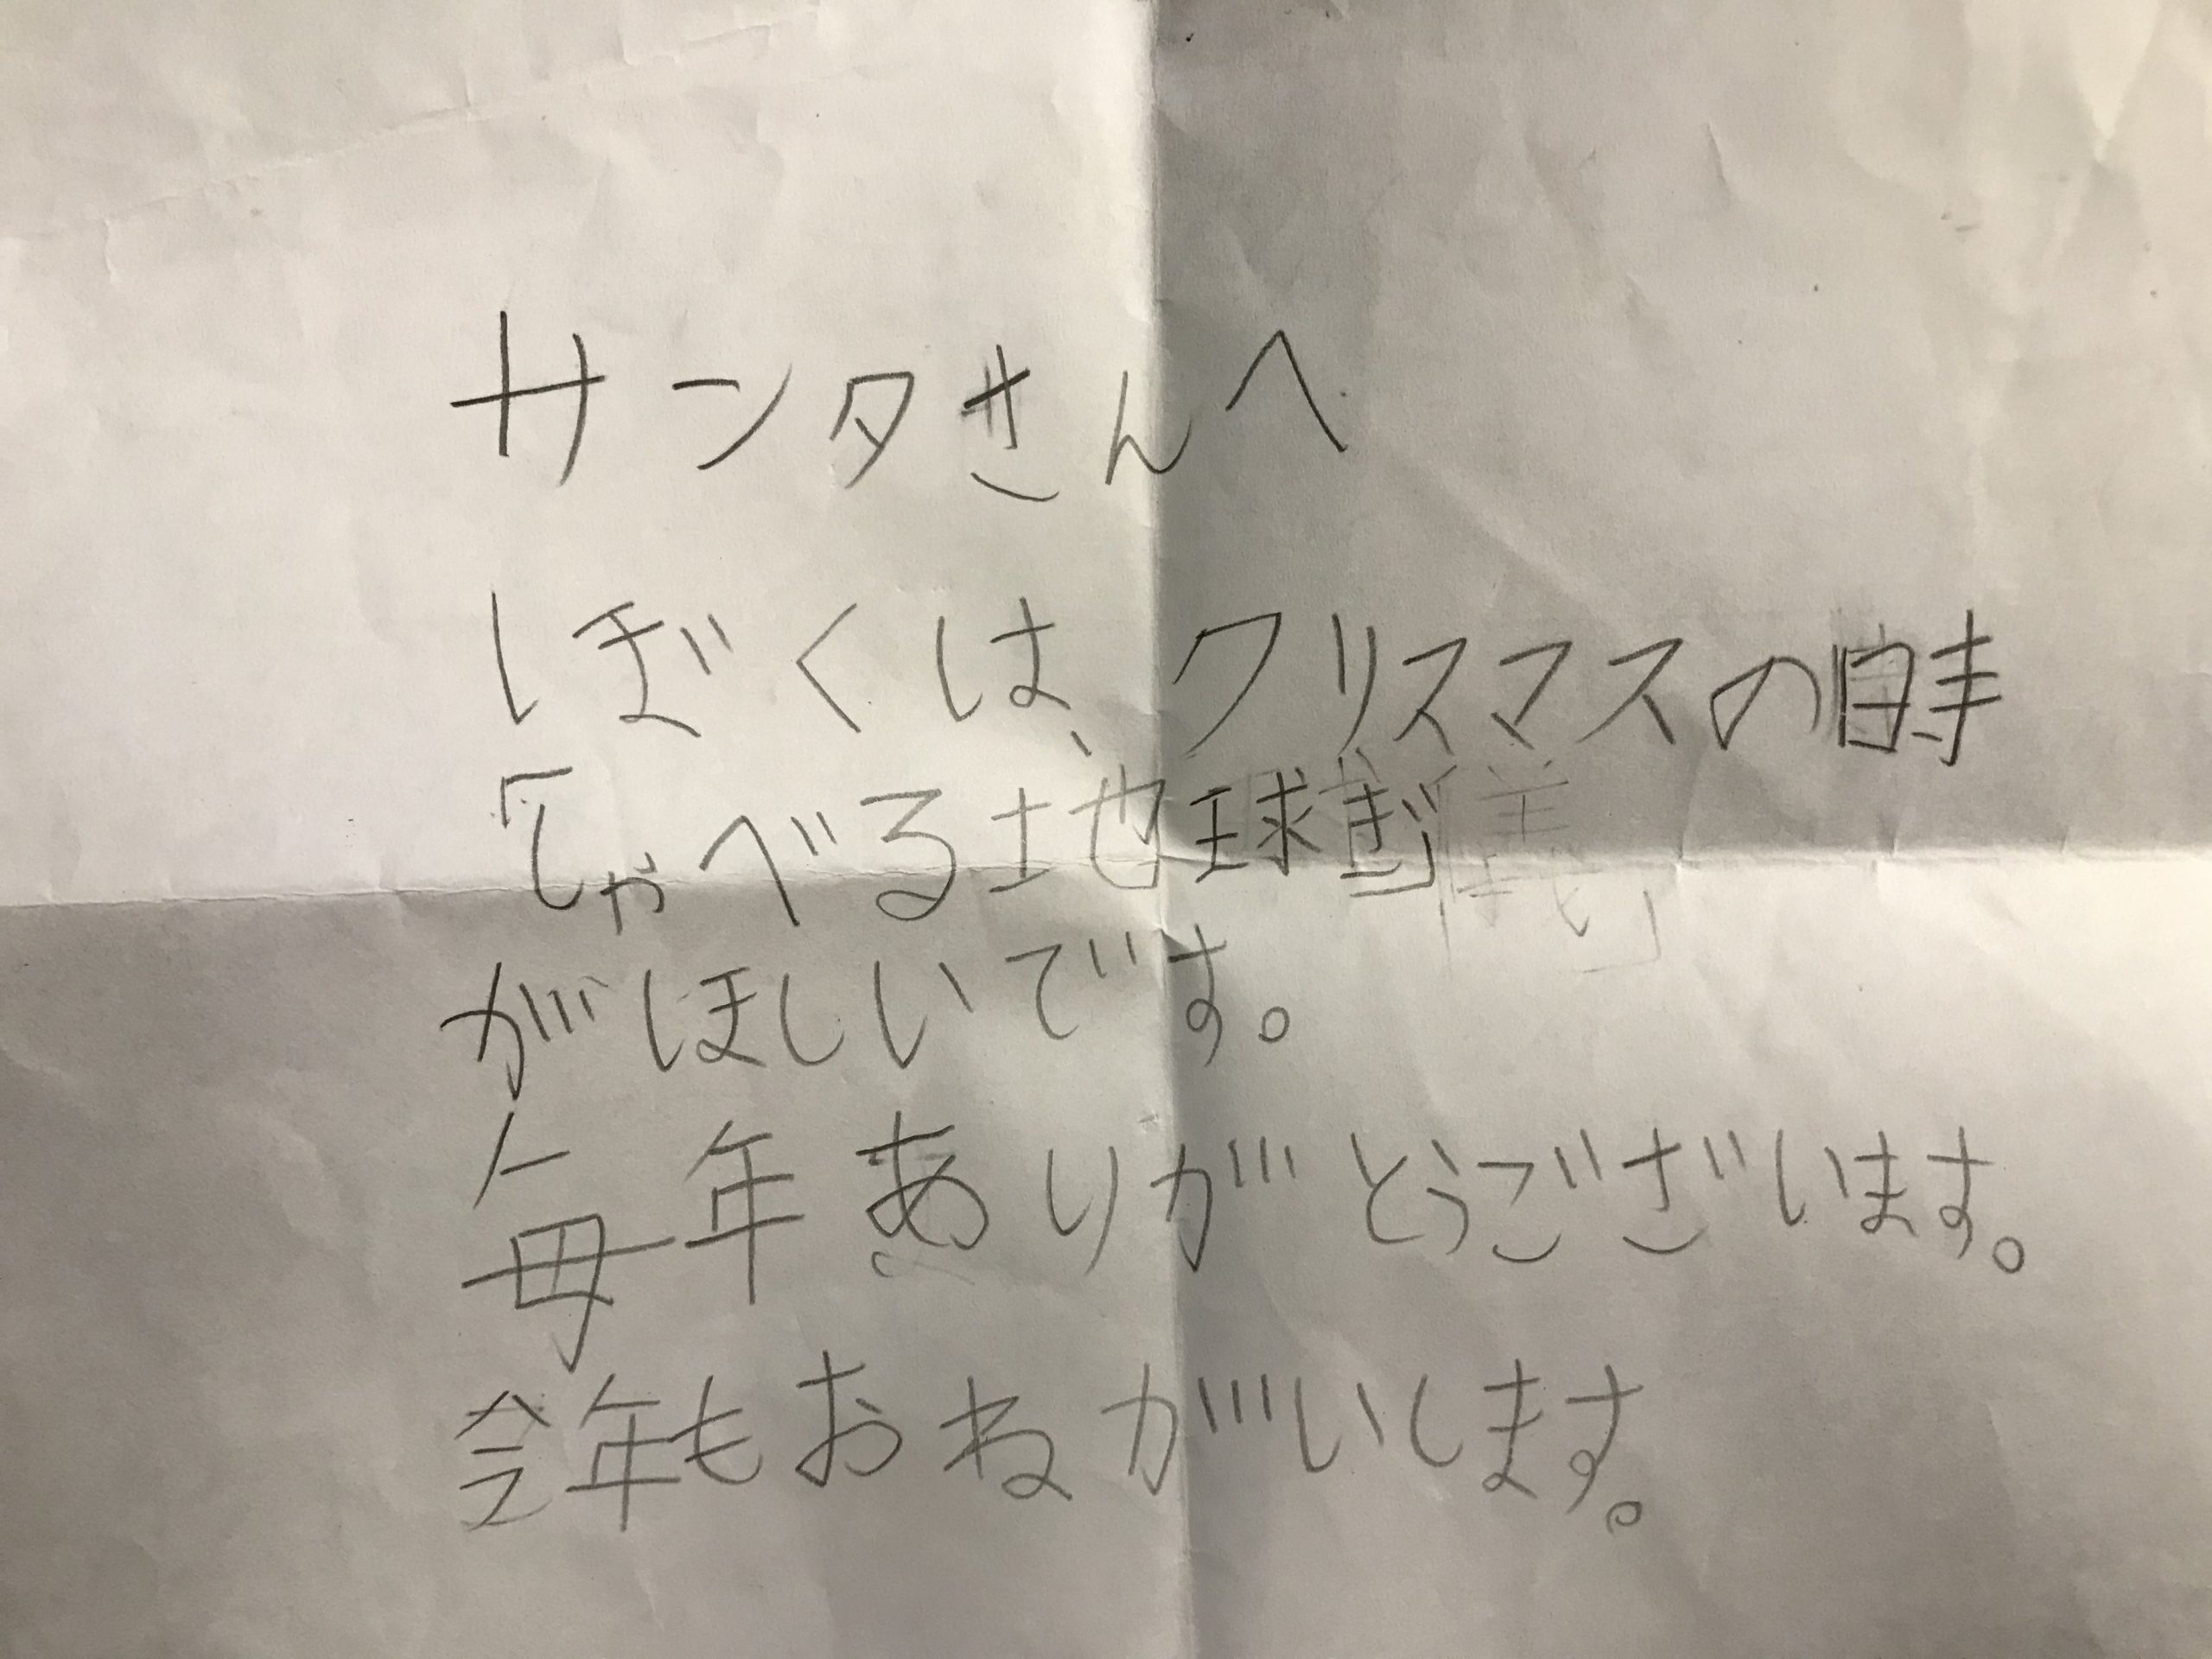 サンタさんへ
ぼくは、クリスマスの時
「しゃべる地球ぎ」
がほしいです。
毎年ありがとうございます。
今年もおねがいします。